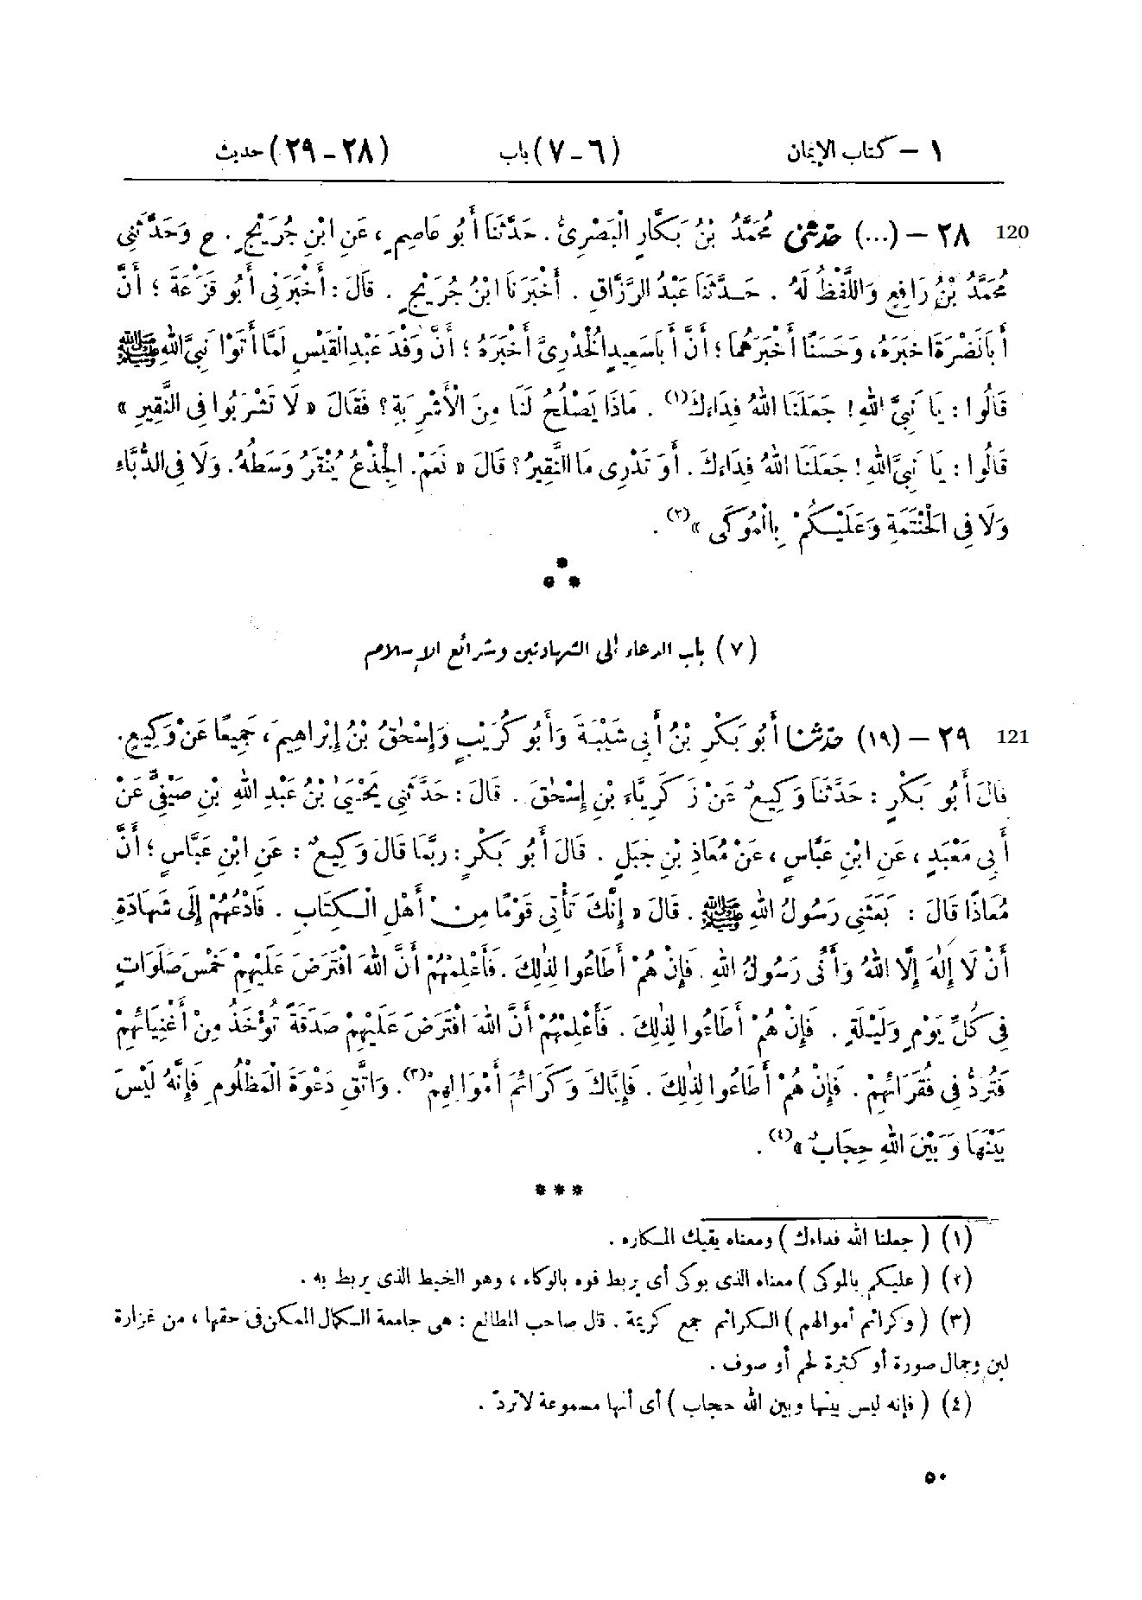 ١ – كتاب الإيمان (٦ – ٧) باب (٢٨ – ٢٩) حديث
120 ٢٨ – (...) حدثني مُحَمَّدُ بْنُ بَكَّارٍ الْبَصْرِيُّ . حَدَّثَنَا أَبُو عَاصِمٍ ، عَنِ ابْنِ جُرَيْجٍ . ح وَحَدَّثَنِي
مُحَمَّدُ بْنُ رَافِعٍ وَاللَّفْظُ لَهُ . حَدَّثَنَا عَبْدُ الرَّزَّاقِ . أَخْبَرَنَا ابْنُ جُرَيْجٍ . قَالَ : أَخْبَرَنِي أَبُو قَزْعَةَ ؛ أَنَّ
أَبَا نَضْرَةَ أَخْبَرَهُ ، وَحَسَنًا أَخْبَرَهُمَا ؛ أَنَّ أَبَا سَعِيدٍ الْخُدْرِيَّ أَخْبَرَهُ ؛ أَنَّ وَفْدَ عَبْدِ الْقَيْسِ لَمَّا أَتَوْا نَبِيَّ اللهِ ﷺ
قَالُوا : يَا نَبِيَّ اللهِ ! جَعَلَنَا اللهُ فِدَاءَكَ(١) . مَاذَا يَصْلُحُ لَنَا مِنَ الْأَشْرِبَةِ ؟ فَقَالَ « لَا تَشْرَبُوا فِي النَّقِيرِ »
قَالُوا : يَا نَبِيَّ اللهِ ! جَعَلَنَا اللهُ فِدَاءَكَ . أَوَ تَدْرِى مَا النَّقِيرُ ؟ قَالَ « نَعَمْ . الْجِذْعُ يُنْقَرُ وَسَطُهُ . وَلَا فِي الدُّبَّاءِ
وَلَا فِي الْحَنْتَمَةِ وَعَلَيْكُمْ بِالْمُوكَى »(٢) .
***
(٧) باب الدعاء إلى الشهادتين وشرائع الإسلام
121 ٢٩ – (١٩) حدثنا أَبُو بَكْرِ بْنُ أَبِي شَيْبَةَ وَأَبُو كُرَيْبٍ وَإِسْحٰقُ بْنُ إِبْرَاهِيمَ ، جَمِيعًا عَنْ وَكِيعٍ .
قَالَ أَبُو بَكْرٍ : حَدَّثَنَا وَكِيعٌ عَنْ زَكَرِيَّاءَ بْنِ إِسْحٰقَ . قَالَ : حَدَّثَنِي يَحْيَىٰ بْنُ عَبْدِ اللهِ بْنِ صَيْفِيٍّ عَنْ
أَبِي مَعْبَدٍ ، عَنِ ابْنِ عَبَّاسٍ ، عَنْ مُعَاذِ بْنِ جَبَلٍ . قَالَ أَبُو بَكْرٍ : رُبَّمَا قَالَ وَكِيعٌ : عَنِ ابْنِ عَبَّاسٍ ؛ أَنَّ
مُعَاذًا قَالَ : بَعَثَنِي رَسُولُ اللهِ ﷺ . قَالَ « إِنَّكَ تَأْتِي قَوْمًا مِنْ أَهْلِ الْكِتَابِ . فَادْعُهُمْ إِلَى شَهَادَةِ
أَنْ لَا إِلٰهَ إِلَّا اللهُ وَأَنِّي رَسُولُ اللهِ . فَإِنْ هُمْ أَطَاعُوا لِذٰلِكَ . فَأَعْلِمْهُمْ أَنَّ اللهَ افْتَرَضَ عَلَيْهِمْ خَمْسَ صَلَوَاتٍ
فِي كُلِّ يَوْمٍ وَلَيْلَةٍ . فَإِنْ هُمْ أَطَاعُوا لِذٰلِكَ . فَأَعْلِمْهُمْ أَنَّ اللهَ افْتَرَضَ عَلَيْهِمْ صَدَقَةً تُؤْخَذُ مِنْ أَغْنِيَائِهِمْ
فَتُرَدُّ فِي فُقَرَائِهِمْ . فَإِنْ هُمْ أَطَاعُوا لِذٰلِكَ . فَإِيَّاكَ وَكَرَائِمَ أَمْوَالِهِمْ(٣) . وَاتَّقِ دَعْوَةَ الْمَظْلُومِ فَإِنَّهُ لَيْسَ
بَيْنَهَا وَبَيْنَ اللهِ حِجَابٌ »(٤) .
***
(١) ( جعلنا الله فداءك ) ومعناه يقيك المكاره .
(٢) ( عليكم بالموكى ) معناه الذى يوكى أى يربط فوه بالوكاء ، وهو الخيط الذى يربط به .
(٣) ( وكرائم أموالهم ) الكرائم جمع كريمة . قال صاحب المطالع : هى جامعة الكمال الممكن فى حقها ، من غزارة
لبن وجمال صورة أو كثرة لحم أو صوف .
(٤) ( فإنه ليس بينها وبين الله حجاب ) أى أنها مسموعة لا تردّ .
٥٠